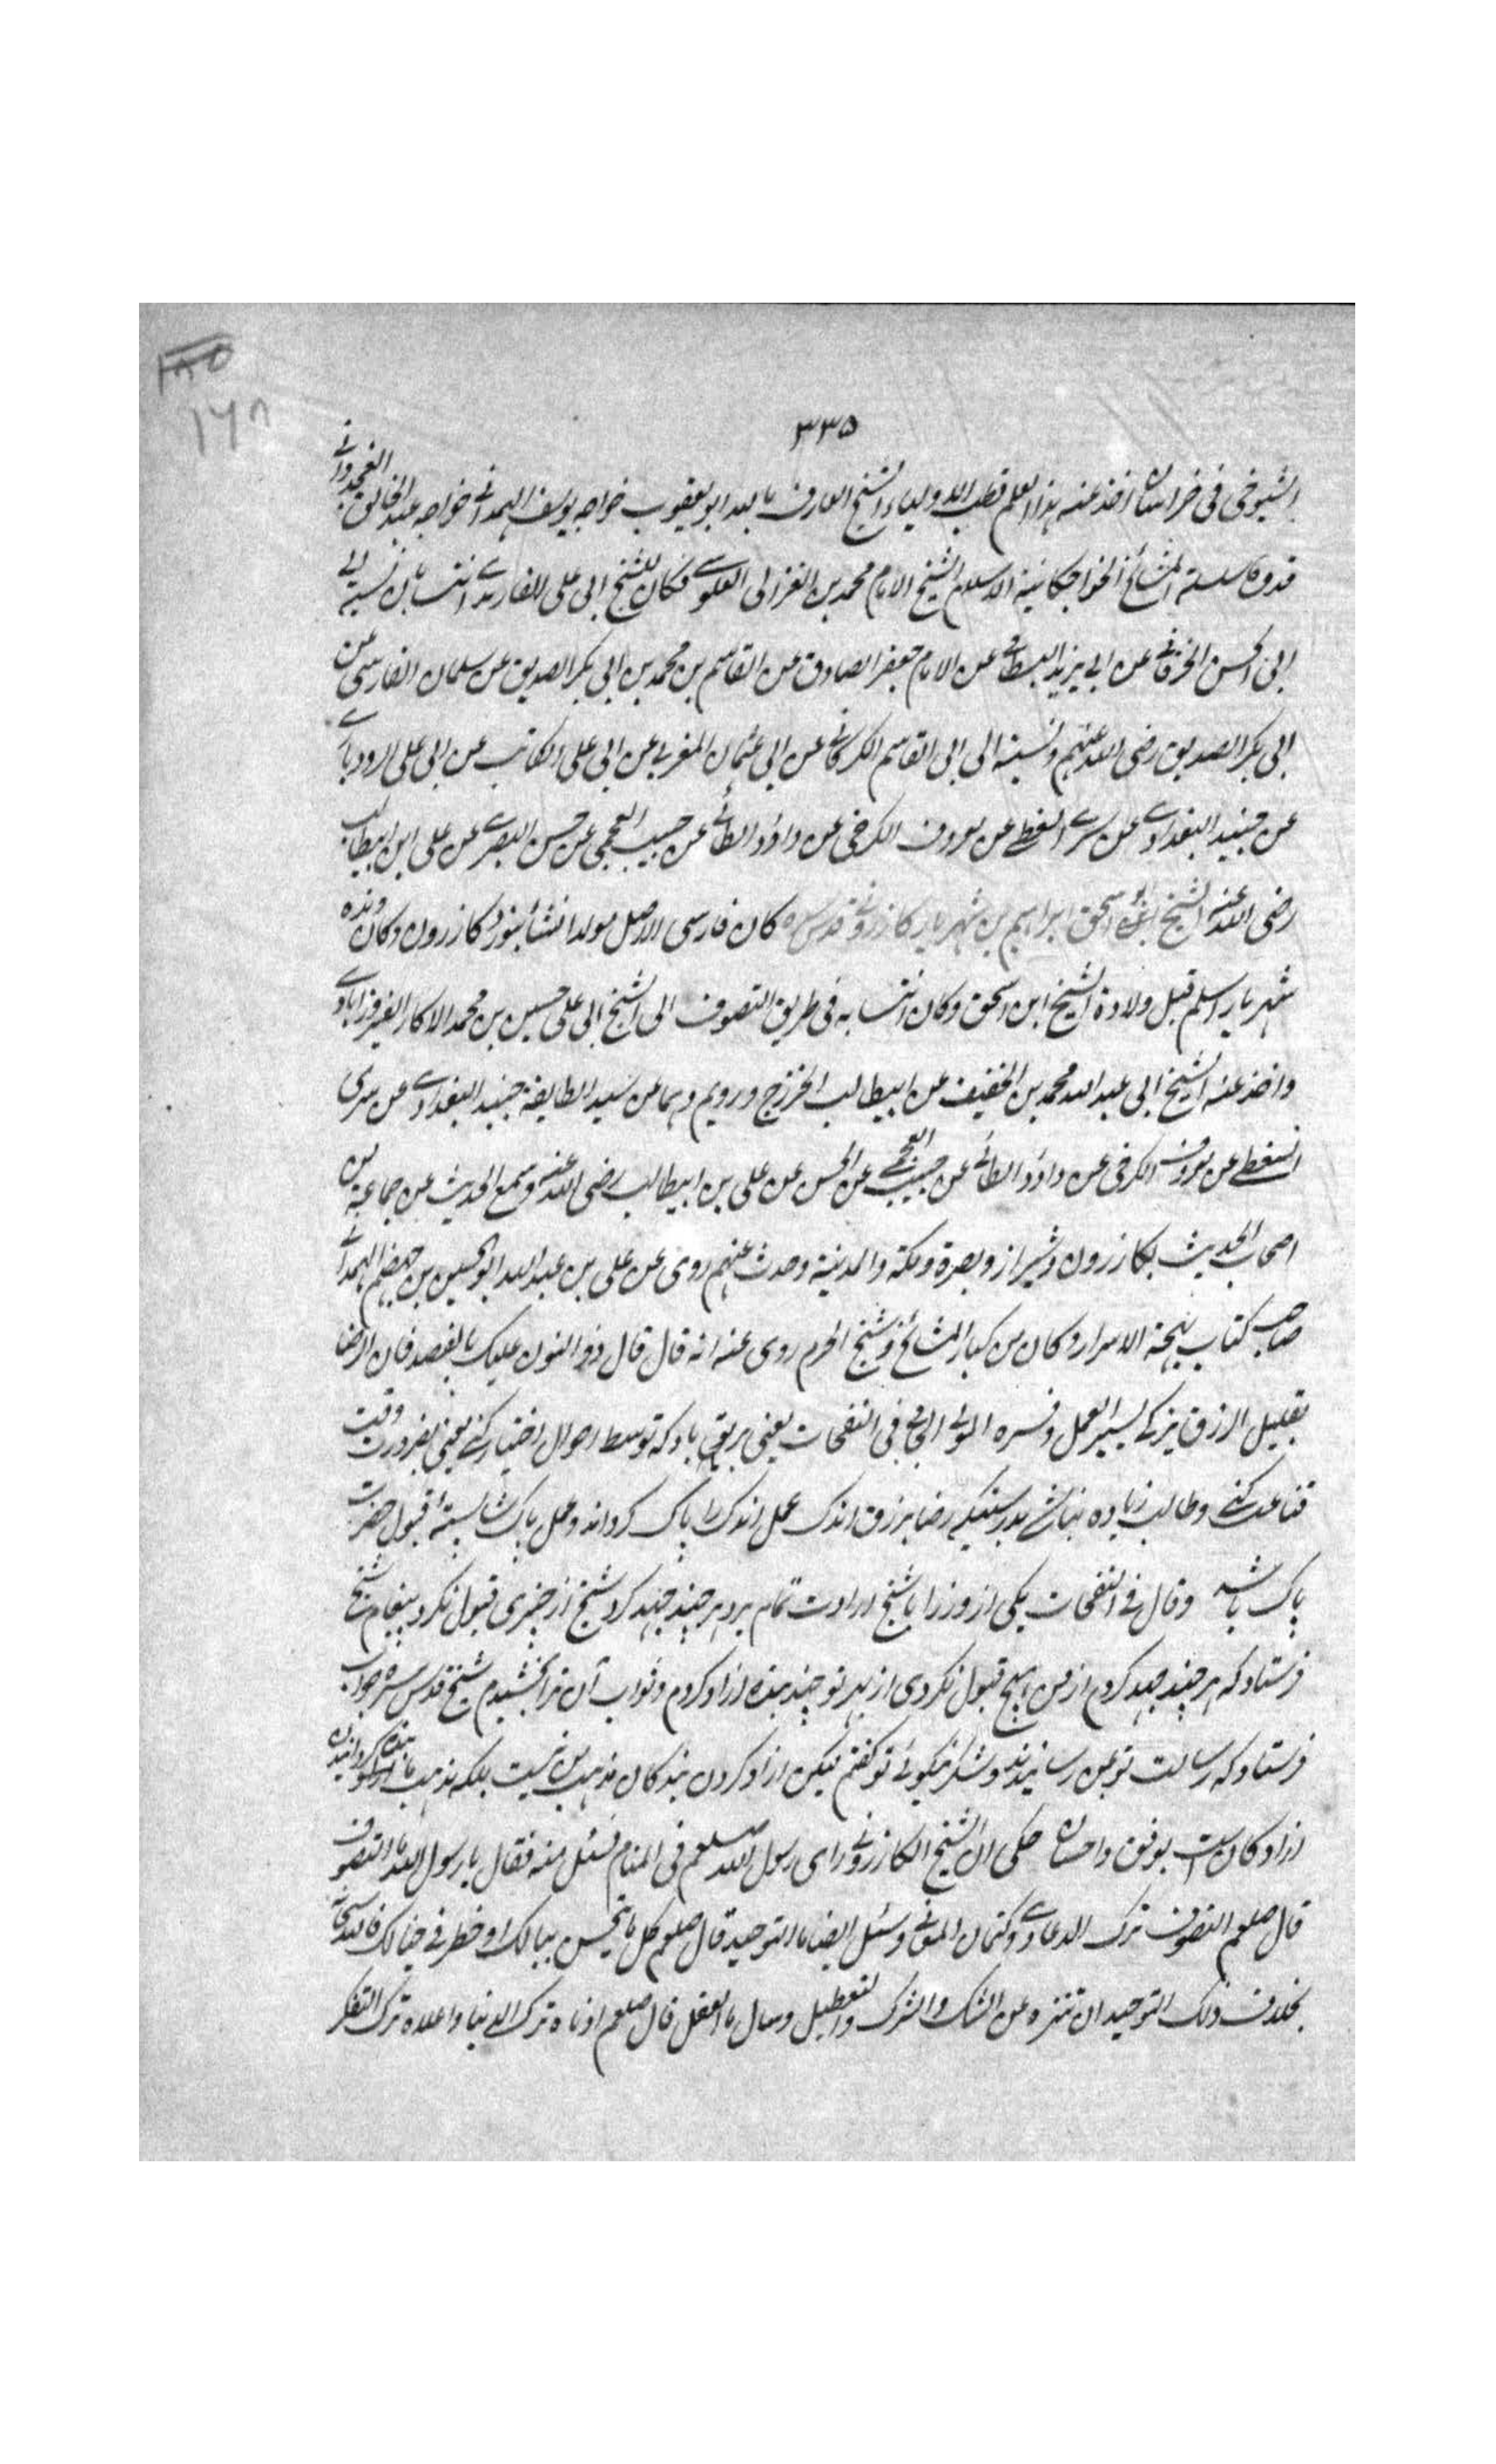 ١٨٥
١٦٨
٣٣٥
الشیوخی فی خراسان اخذ عنه هذا العلم قطب الاولیاء الشیخ العارف بالله ابو یعقوب خواجه یوسف الهمدانی خواجه عبد الخالق الغجدوانی
قدوة سلسلة المشائخ الخواجکانیة الاسلام الشیخ الامام محمد بن الغزالی الطوسی فکان للشیخ ابی علی الفارمدی انتسابان نسبة الی
ابی الحسن الخرقانی عن ابی یزید البسطامی عن الامام جعفر الصادق عن القاسم بن محمد بن ابی بکر الصدیق عن سلمان الفارسی عن
ابی بکر الصدیق رضی الله عنهم ونسبته الی ابی القاسم الکرکانی عن ابی عثمان المغربی عن ابی علی الکاتب عن ابی علی الرودباری
عن جنید البغدادی عن سری السقطی عن معروف الکرخی عن داؤد الطائی عن حبیب العجمی عن حسن البصری عن علی ابن ابیطالب
رضی الله عنه الشیخ ابو اسحق ابراهیم بن شهریار کازرونی قدس سره کان فارسی الاصل مولدا نشأ بنورد کازرون وکان والده
شهریار اسلم قبل ولادة الشیخ ابن اسحق وکان انتسابه فی طریق التصوف الی الشیخ ابی علی حسین بن محمد الاکار الفیروزابادی
واخذ عنه الشیخ ابی عبد الله محمد بن الخفیف عن ابیطالب الخزرج ورویم وهما عن سید الطایفة جنید البغدادی عن سری
السقطی عن معروف الکرخی عن داؤد الطائی عن حبیب العجمی عن الحسن عن علی بن ابیطالب رضی الله عنه وسمع الحدیث عن جماعة من
اصحاب الحدیث بکازرون وشیراز وبصرة ومکة والمدینة وحدث عنهم روی عن علی بن عبد الله ابو الحسین بن جهضم الهمدانی
صاحب کتاب بهجة الاسرار وکان من کبار المشائخ وشیخ الحرم روی عنه انه قال قال ذو النون علیک بالقصد فان الرضا
بقلیل الرزق یزکی یسیر العمل وفسره المولی الجامی فی النفحات یعنی بر تو باد که توسط احوال اختیار کنی یعنی بضرورت وقت
قناعت کنی وطالب زیاده نباشی بدرستیکه رضا برزق اندک عمل اندک را پاک کرداند وعمل پاک شایسته قبول حضرت
پاک باشد وقال فی النفحات یکی از وزرا با شیخ ارادت تمام برد هر چند جهد کرد شیخ از چیزی قبول نکرد پیغام شیخ
فرستاد که هر چند جهد کردم از من هیچ قبول نکردی از بهر تو چند بنده ازاد کردم وثواب آن ترا بخشیدم شیخ قدس سره جواب
فرستاد که رسالت تو بمن رسانیدند وشکر نیکوئی تو کفتم لیکن ازاد کردن بندکان مذهب من نیست بلکه مذهب ما بنده کردانیدن
ازادکان است برفق واحسان حکی ان الشیخ الکازرونی رای رسول الله صلعم فی المنام فسئل منه فقال یا رسول الله ما التصوف
قال صلعم التصوف ترک الدعاوی وکتمان المعانی وسئل ایضا ما التوحید قال صلعم کل ما یحس ببالک او خطر فی خیالک فالله سبحانه
بخلاف ذلک التوحید ان تنزه عن الشک والشرک والتعطیل وسال ما العقل قال صلعم ادناه ترک الدنیا واعلاه ترک التفکر